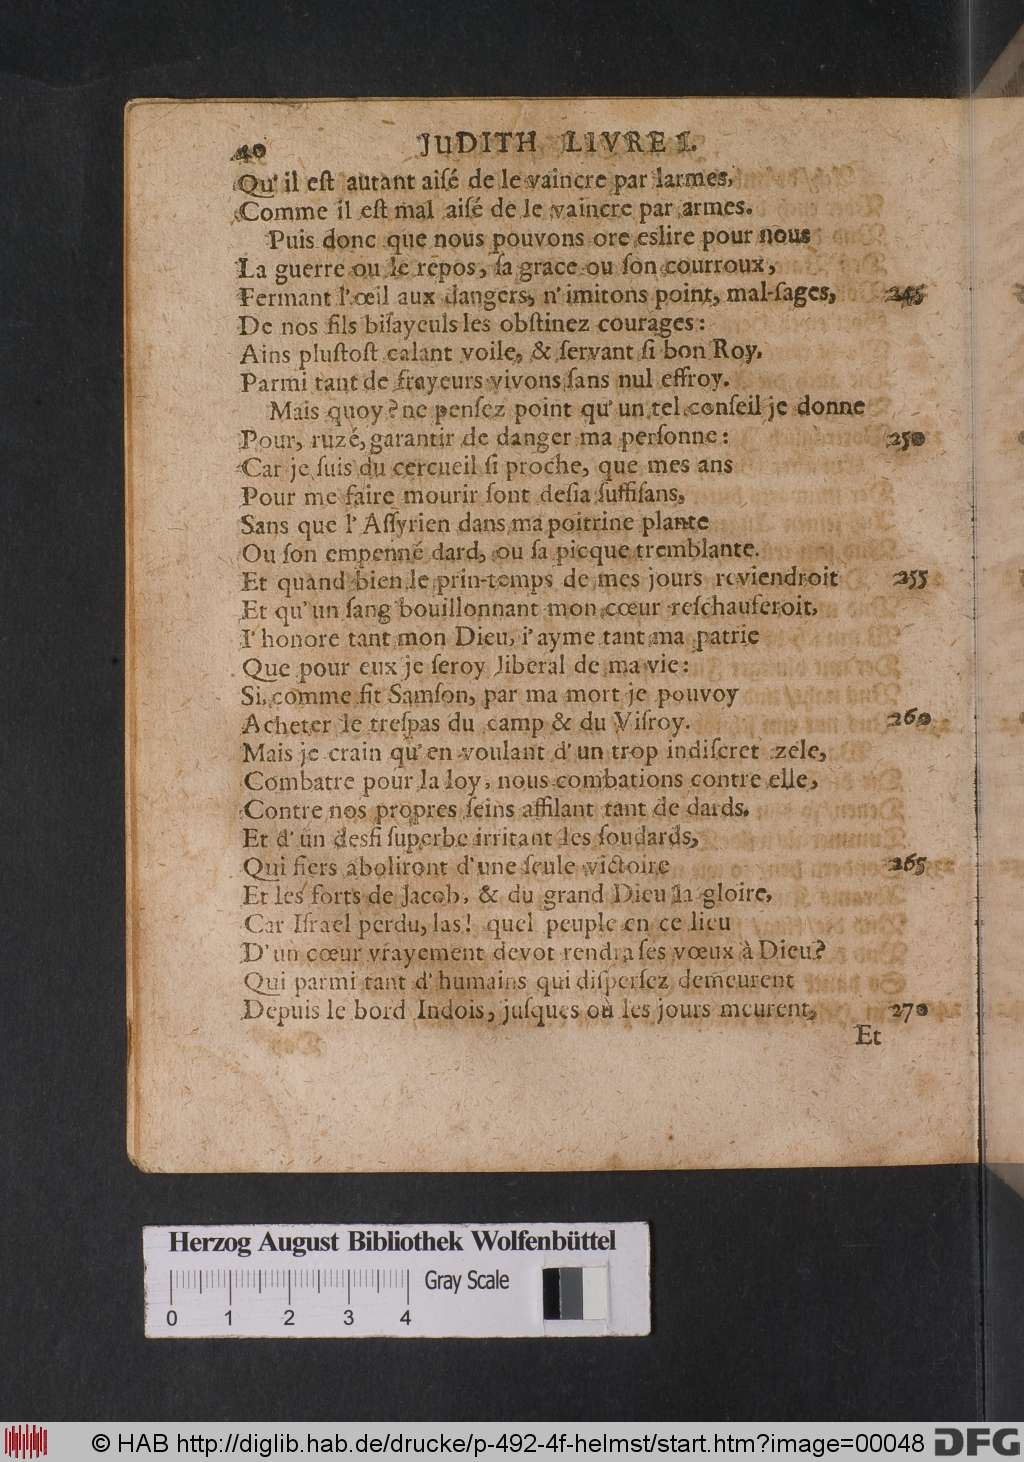 40 JUDITH LIVRE I.
Qu' il eſt autant aiſé de le vaincre par larmes,
Comme il eſt mal aiſé de le vaincre par armes.
Puis donc que nous pouvons ore eslire pour nous
La guerre ou le repos, ſa grace ou ſon courroux,
Fermant l'œil aux dangers, n' imitons point, mal-ſages, 245
De nos fils biſayeuls les obſtinez courages:
Ains pluſtoſt calant voile, & ſervant ſi bon Roy,
Parmi tant de frayeurs vivons ſans nul effroy.
Mais quoy? ne penſez point qu' un tel conſeil je donne
Pour, ruzé, garantir de danger ma perſonne: 250
Car je ſuis du cercueil ſi proche, que mes ans
Pour me faire mourir ſont deſia ſuffiſans,
Sans que l' Aſſyrien dans ma poitrine plante
Ou ſon empenné dard, ou ſa picque tremblante.
Et quand bien le prin-temps de mes jours reviendroit 255
Et qu' un ſang bouillonnant mon cœur reſchauferoit,
I' honore tant mon Dieu, i' ayme tant ma patrie
Que pour eux je ſeroy liberal de ma vie:
Si, comme fit Samſon, par ma mort je pouvoy
Acheter le treſpas du camp & du Viſroy. 260
Mais je crain qu' en voulant d' un trop indiſcret zele,
Combatre pour la loy, nous combations contre elle,
Contre nos propres ſeins affilant tant de dards,
Et d' un desfi ſuperbe irritant les ſoudards,
Qui fiers aboliront d'une ſeule victoire 265
Et les forts de Jacob, & du grand Dieu la gloire,
Car Iſrael perdu, las! quel peuple en ce lieu
D' un cœur vrayement devot rendra ſes vœux à Dieu?
Qui parmi tant d' humains qui diſperſez demeurent
Depuis le bord Indois, juſques où les jours meurent, 270
Et
Herzog August Bibliothek Wolfenbüttel
Gray Scale
0 1 2 3 4
© HAB http://diglib.hab.de/drucke/p-492-4f-helmst/start.htm?image=00048 DFG